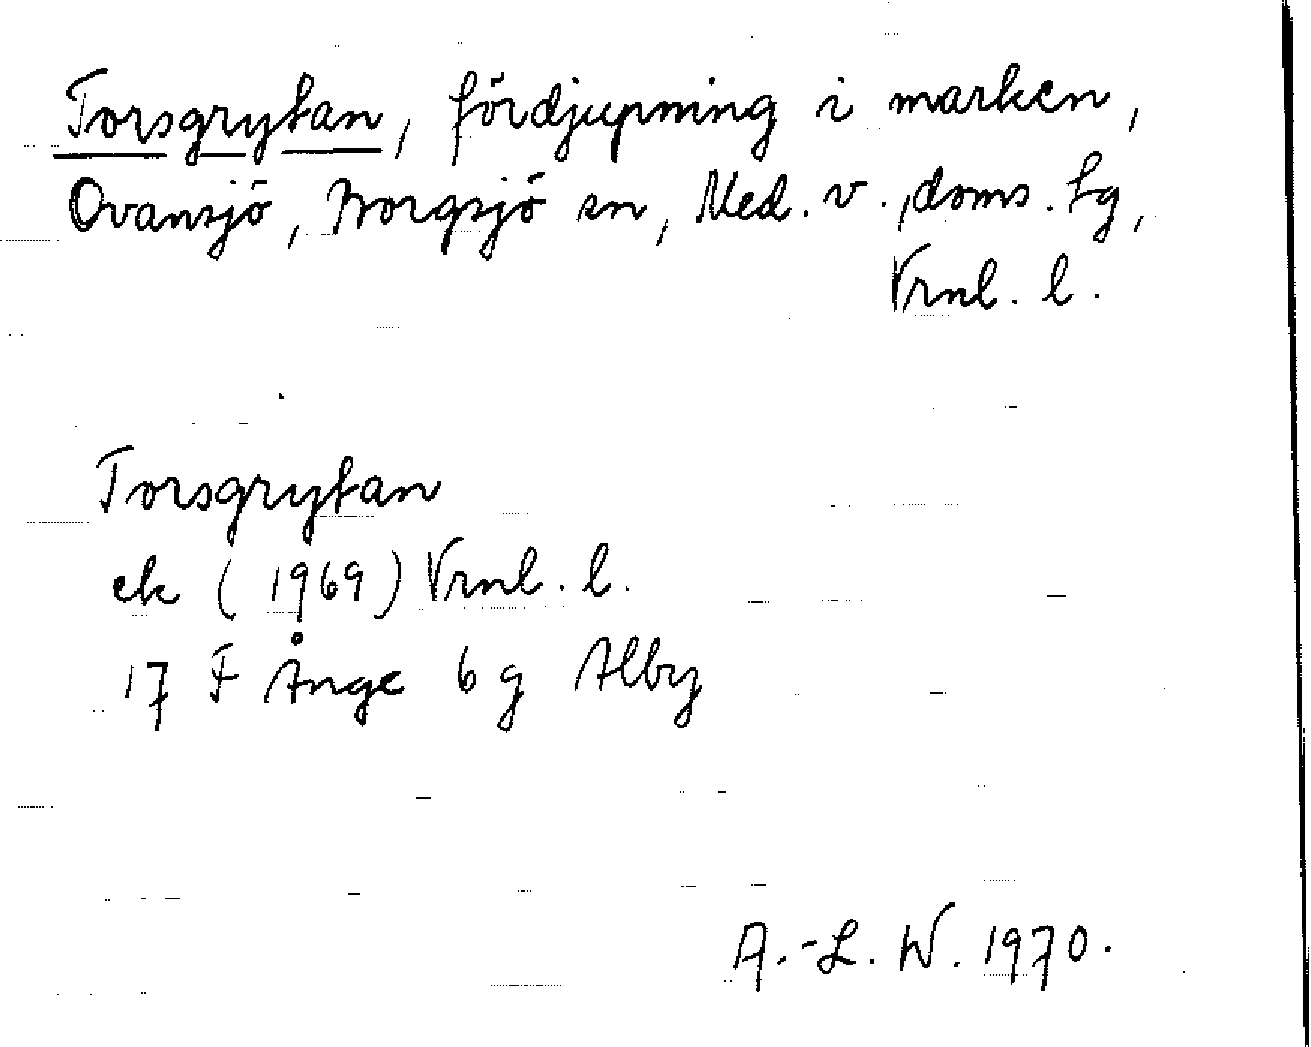 Torsgrytan, fördjupning i marken,
Ovansjö, Borgsjö sn, Med. v., doms. tg,
Vrnl. l.
Torsgrytan
ek (1969) Vrnl. l.
17 F Ånge 6 g Alby
A.-L. W. 1970.